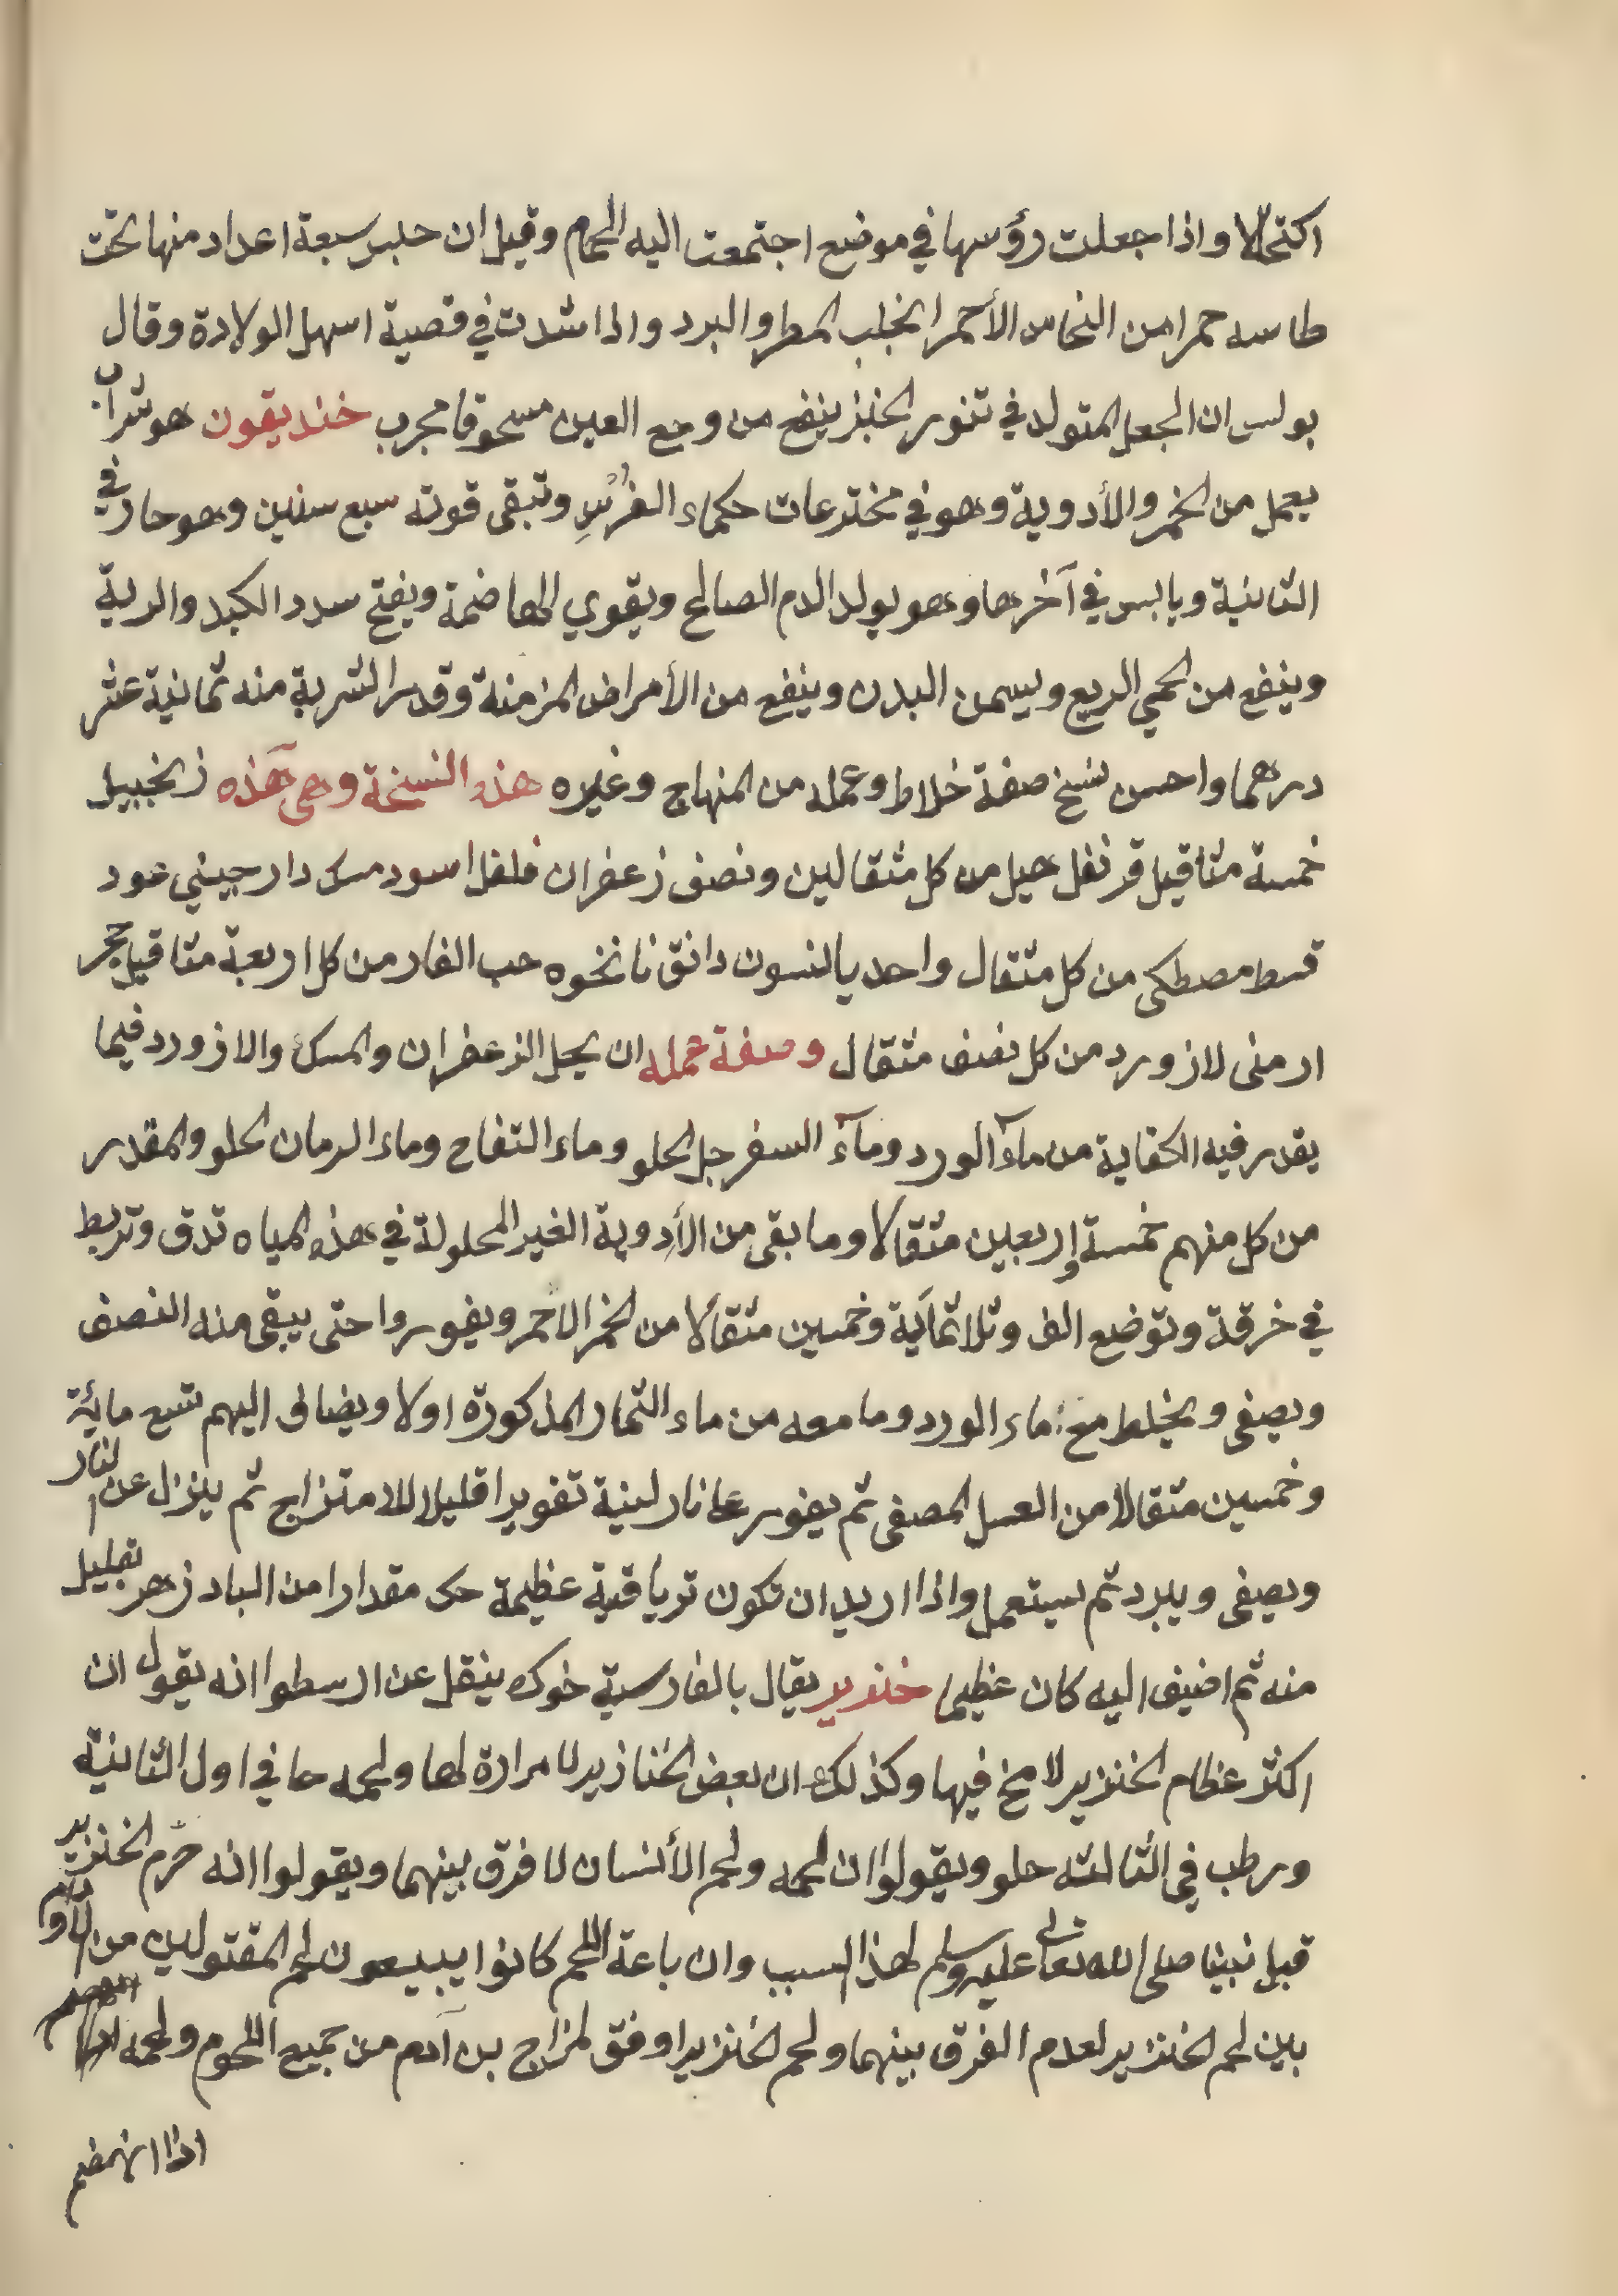 اكتحالا واذا جعلت رؤسها في موضع اجتمعت اليه الحمام وقيل ان حلبر سبعة اعداد منها تحت
طاسه حمرا من النحاس الأحمر يجلب المطر والبرد واذا شدت في قصبة اسهل الولادة وقال
بولس ان الجعل المتولد في تنور الخبز ينفع من وجع العين مسحوقا مجرب خنديقون هو شراب
يعمل من الخمر والأدوية وهو في مخترعات حكماء الفرس وتبقى قوته سبع سنين وهو حار في
الثانية ويابس في آخرها وهو يولد الدم الصالح ويقوي الهاضمة ويفتح سدد الكبد والرية
وينفع من الحمي الربع ويسمن البدن وينفع من الأمراض المزمنة وقدر الشربة منه ثمانية عشر
درهما واحسن نسخ صفة خلاط وعمله من المنهاج وغيره هذه النسخة وهي هذه زنجبيل
خمسة مثاقيل قرنفل هيل من كل مثقالين ونصف زعفران فلفل اسود مسك دارجيني عود
قسط مصطكى من كل مثقال واحد يانسون دانق نانخوه حب الغار من كل اربعة مثاقيل حجر
ارمنى لازورد من كل نصف مثقال وصفة عمله ان يحل الزعفران والمسك والازورد فيما
يقدر فيه الكفاية من مآء الورد ومآء السفرجل الحلو وماء التفاح وماء الرمان الحلو والمقدر
من كل منهم خمسة واربعين مثقالا وما بقى من الأدوية الغير المحلولة في هذه المياه تدق وتربط
في خرقة وتوضع الف وثلاثمآية وخمسين مثقالا من الخمر الاحمر ويفوروا حتى يبقى منه النصف
ويصفى ويخلط مع ماء الورد وما معه من ماء الثمار المذكورة اولا ويضاف اليهم تسع مائة
وخمسين مثقالا من العسل المصفى ثم يفور على نار لينة تفويرا قليلا للامتزاج ثم ينزل عن النار
ويصفى ويبرد ثم يستعمل واذا اريد ان تكون ترياقية عظيمة حك مقدارا من البادزهر بقليل
منه ثم اضيف اليه كان عظيما خنزير يقال بالفارسية خوك ينقل عن ارسطوا انه يقول ان
اكثر عظام الخنزير لا مخ فيها وكذلك ان بعض الخنازير لا مرارة لها ولحمه حا في اول الثانية
ورطب في الثالثه حلو ويقولوا ان لحمه ولحم الأنسان لا فرق بينهما ويقولوا انه حرّم الخنزير
قبل نبينا صلى الله تعالى عليه وسلم لهذا السبب وان باعة اللحم كانوا يبيعون لحم المقتولين من
بين لحم الخنزير لعدم الفرق بينهما ولحم الخنزير اوفق لمزاج بن آدم من جميع اللحوم ولحمه
اذا انهضم